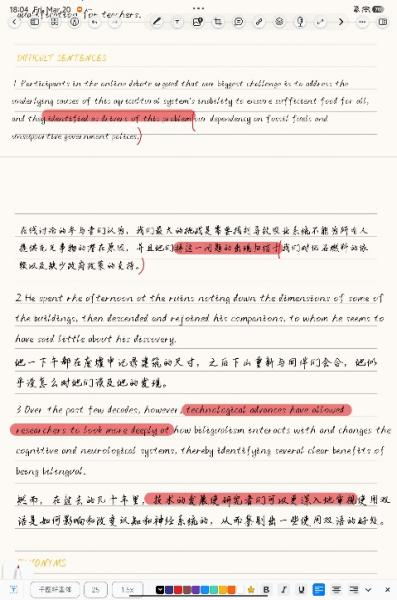 18:04 Fri, Mar 20
qualification for teachers.
DIFFICULT SENTENCES
1 Participants in the online debate argued that our biggest challenge is to address the
underlying causes of this agricultural system's inability to ensure sufficient food for all,
and they identified as drivers of this problem our dependency on fossil fuels and
unsupportive government polices.)
在线讨论的参与者们认为，我们最大的挑战是需要找到导致农业系统不能为所有人
提供充足事物的潜在原因，并且他们将这一问题的出现归结于我们对化石燃料的依
赖以及缺少政府政策的支持。)
2 He spent rhe afternoon at the ruins noting down the dimensions of some of
the buildings, then descended and rejoined his companions, to whom he seems to
have said little about his discovery.
他一下午都在废墟中记录建筑的尺寸，之后下山重新与同伴们会合，他似
乎没怎么对他们谈及他的发现。
3 Over the past few decades, however, technological advances have allowed
researchers to look more deeply at how bilingualism interacts with and changes the
cognitive and neurological systems, thereby identifying several clear benefits of
being bilingual.
然而，在过去的几十年里，技术的发展使研究者们可以更深入地审视使用双
语是如何影响和改变认知和神经系统的，从而鉴别出一些使用双语的好处。
25
1.5x
B I U